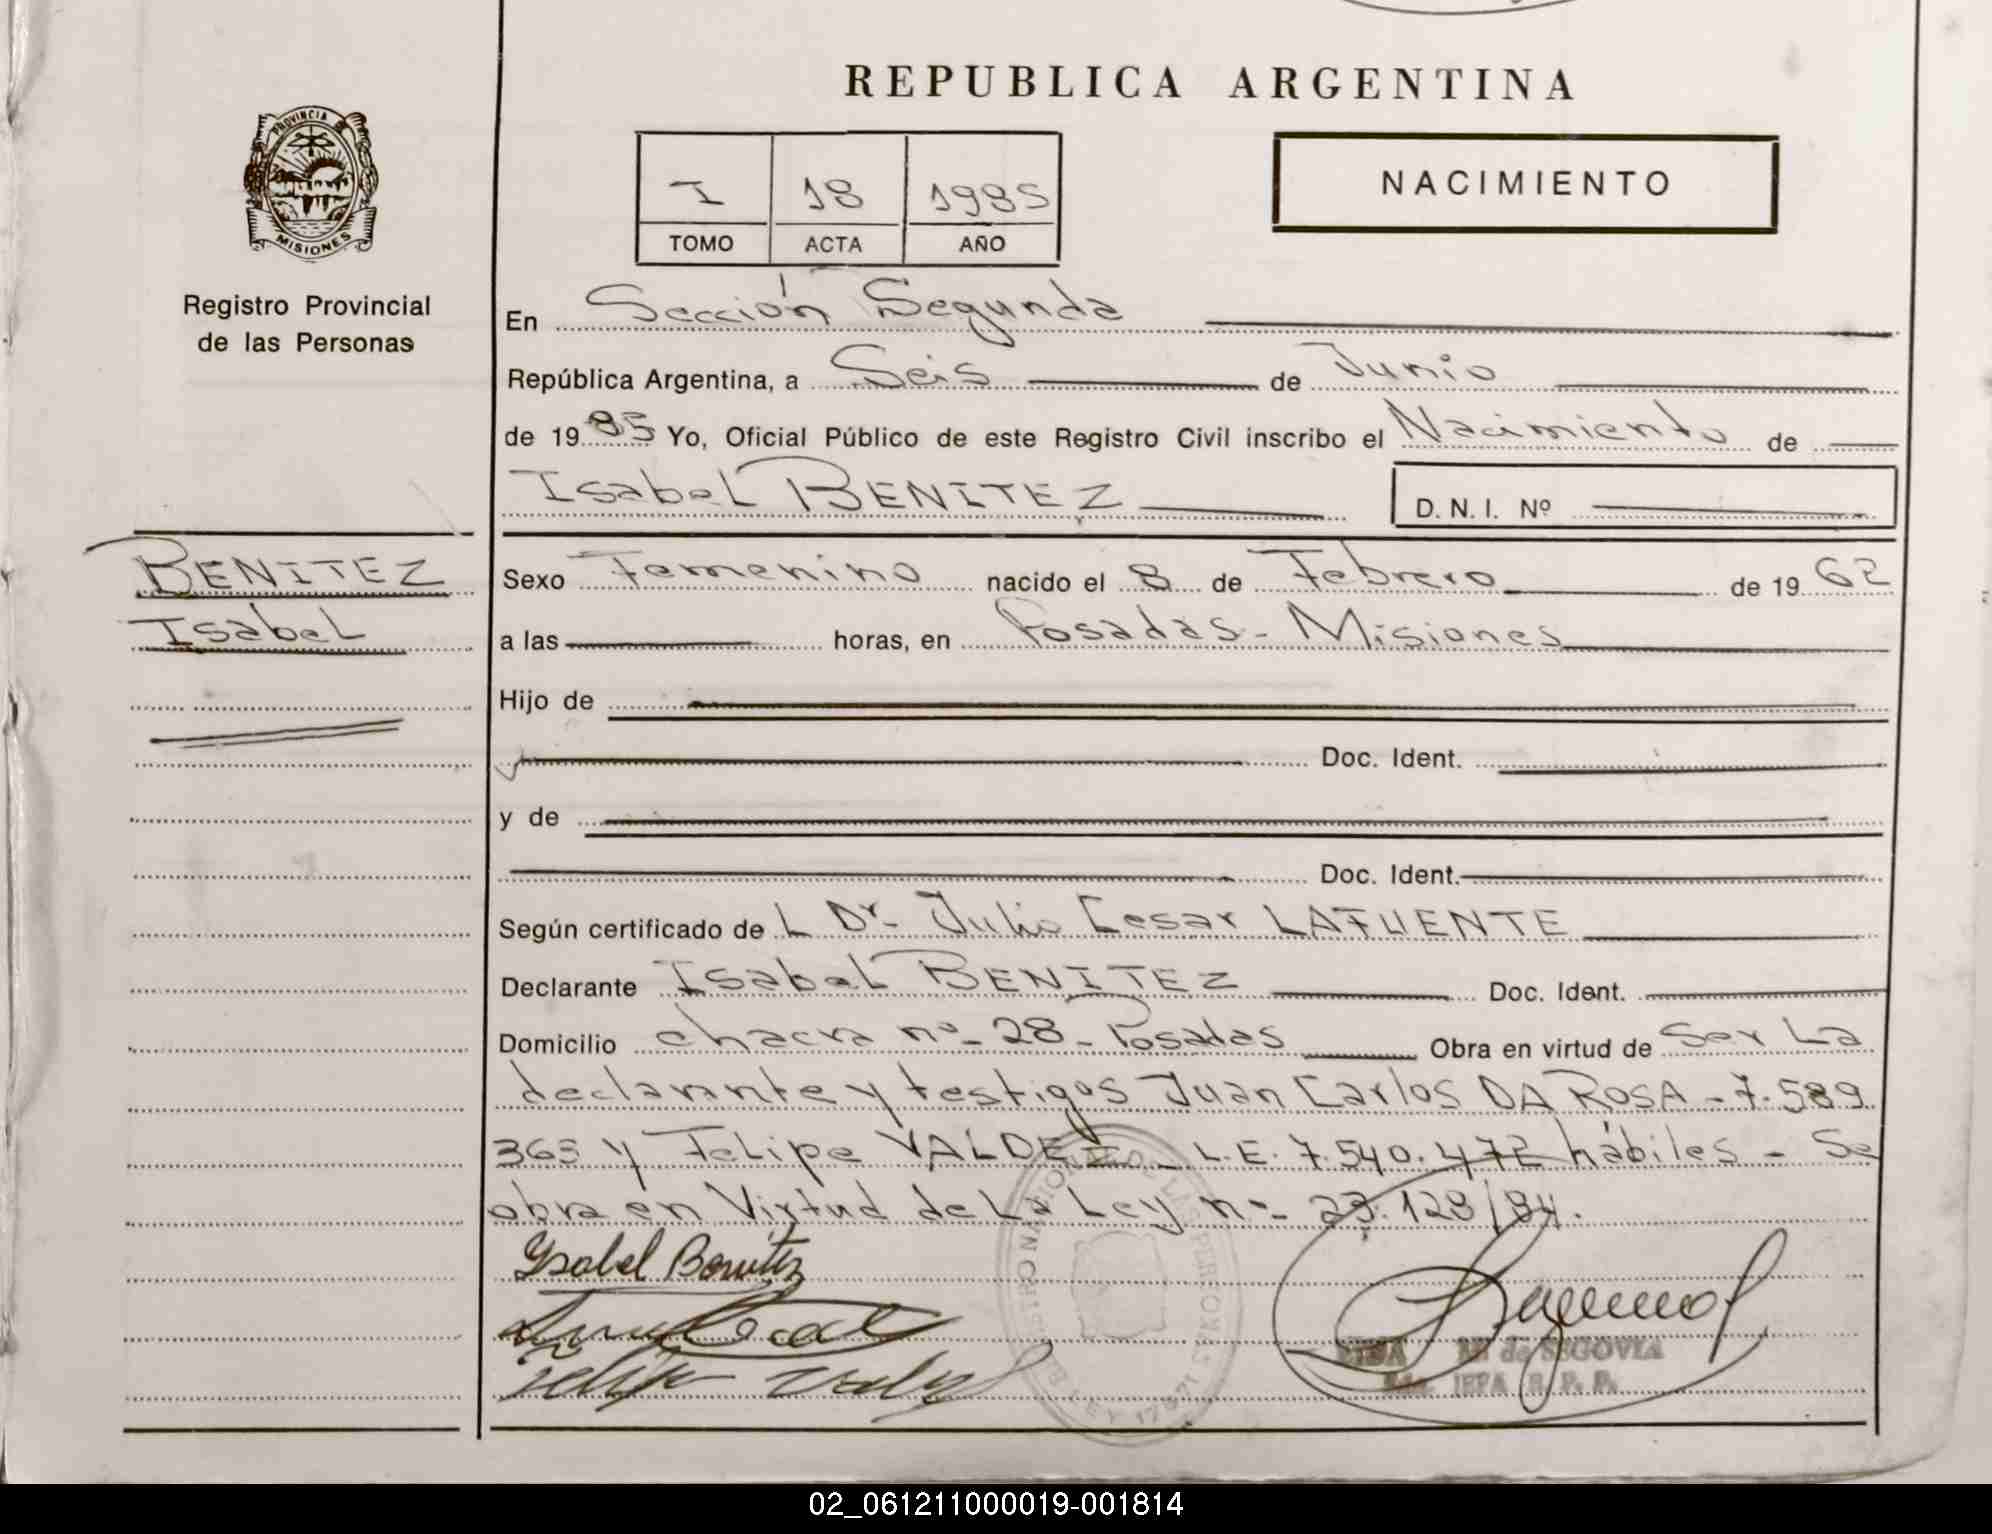 REPUBLICA ARGENTINA
PROVINCIA DE
MISIONES
Registro Provincial
de las Personas
I 18 1985
TOMO ACTA AÑO
NACIMIENTO
En Sección Segunda
República Argentina, a Seis de Junio
de 1985 Yo, Oficial Público de este Registro Civil inscribo el Nacimiento de
Isabel BENITEZ D. N. I. Nº
BENITEZ
Isabel
Sexo Femenino nacido el 8 de Febrero de 1962
a las horas, en Posadas - Misiones
Hijo de
Doc. Ident.
y de
Doc. Ident.
Según certificado de L Dr. Julio Cesar LAFUENTE
Declarante Isabel BENITEZ Doc. Ident.
Domicilio chacra nº 28 - Posadas Obra en virtud de Ser La
declarante y testigos Juan Carlos DA ROSA - 7.589
365 y Felipe VALDEZ - L.E. 7.540.472 hábiles - Se
obra en Virtud de La Ley nº 23.128/84.
Ysabel Benitez
de SEGOVIA
JEFA R. P. P.
02_061211000019-001814